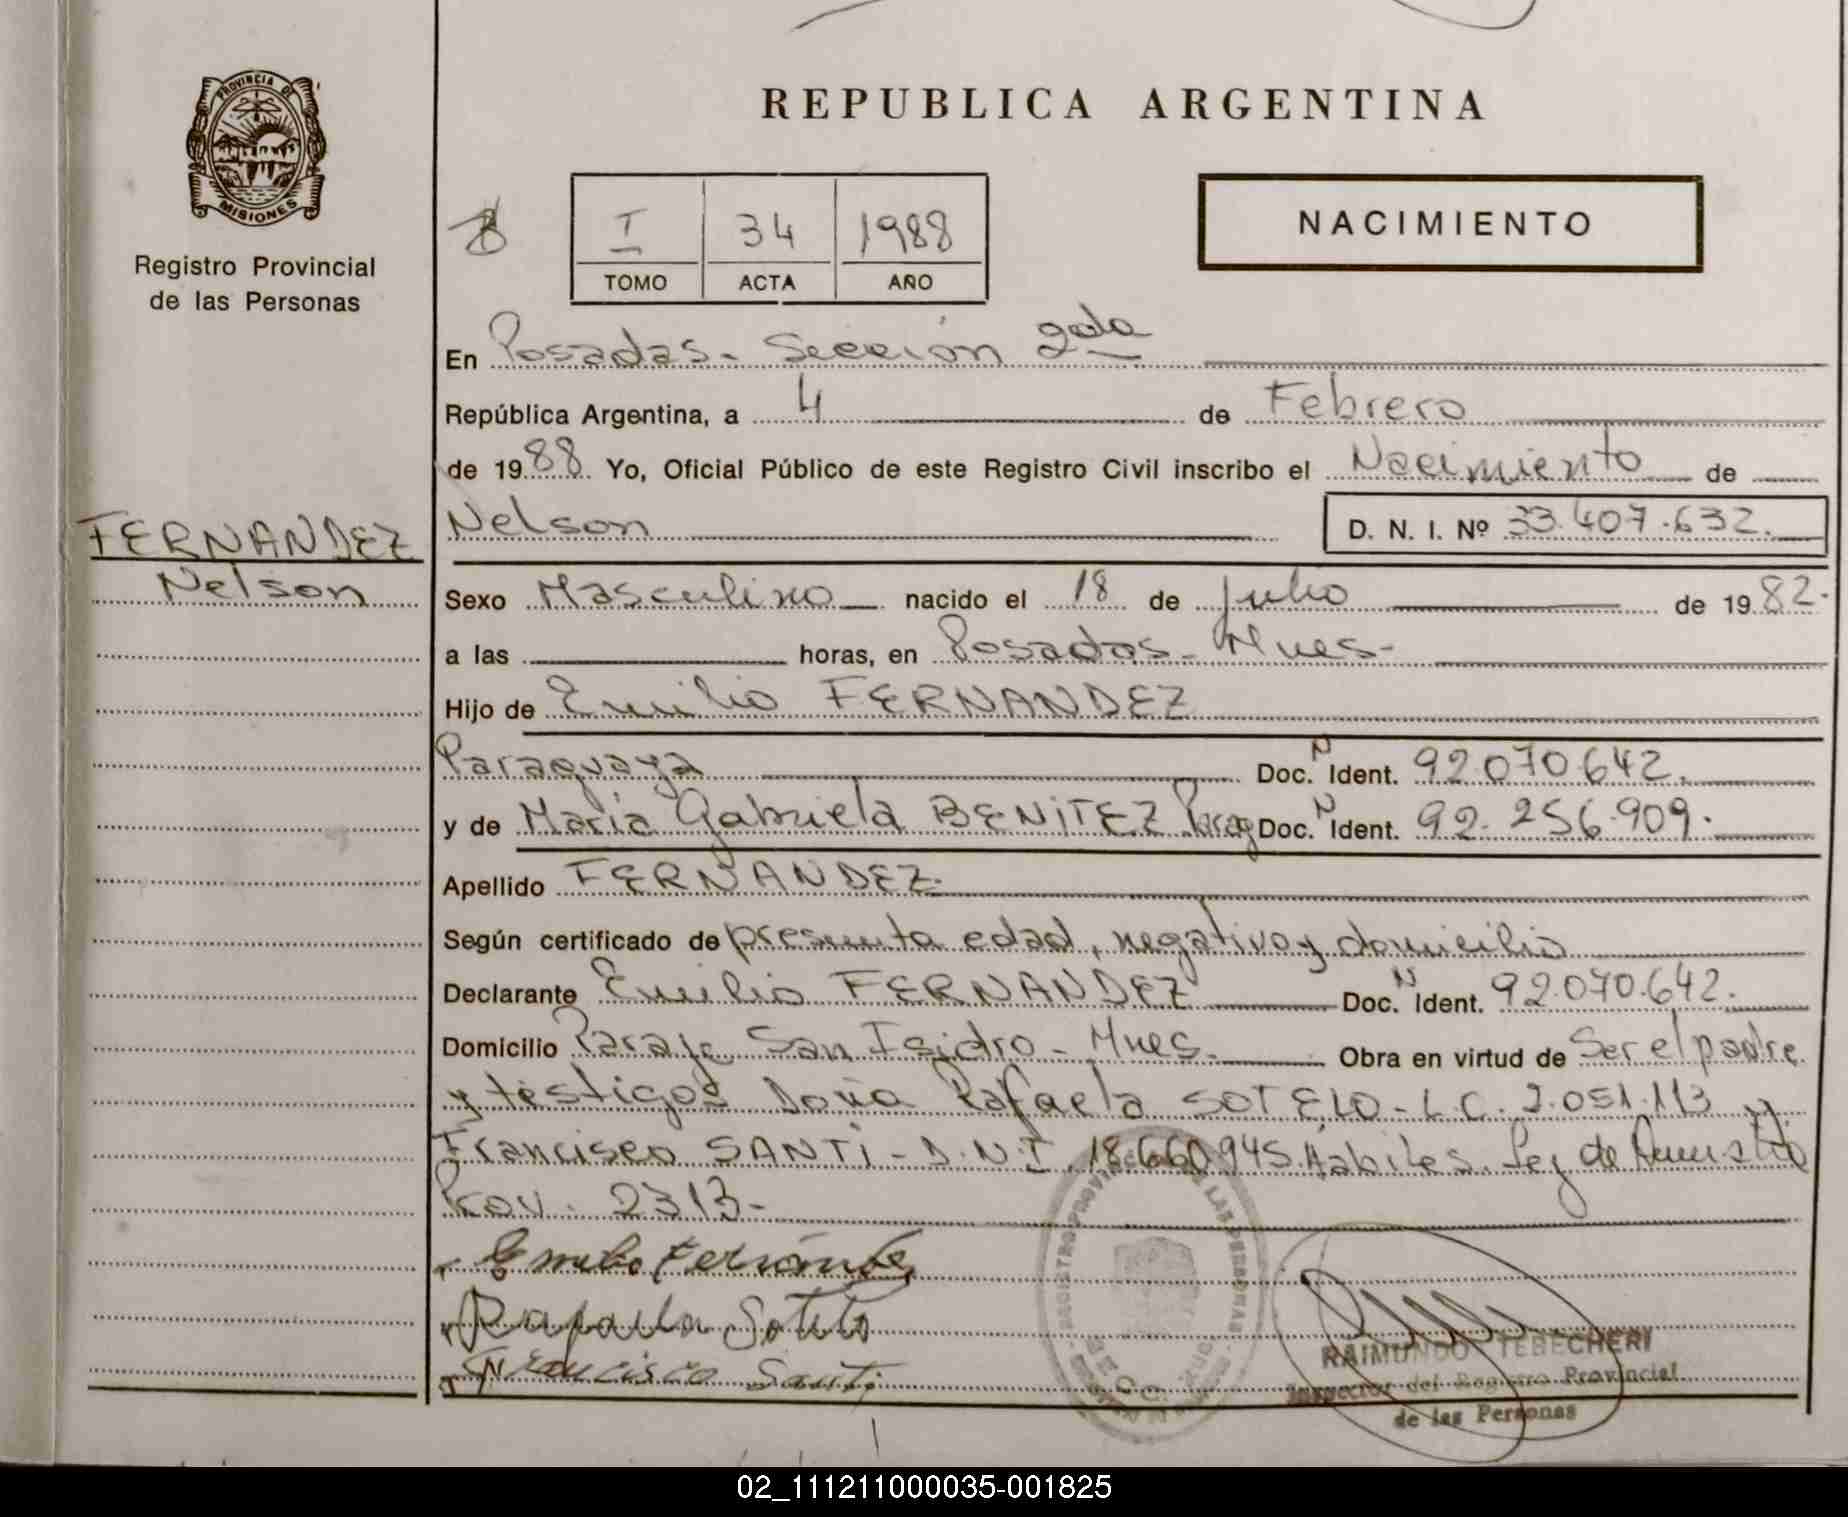 REPUBLICA ARGENTINA
PROVINCIA DE
MISIONES
Registro Provincial
de las Personas
I 34 1988
TOMO ACTA AÑO
NACIMIENTO
En Posadas - Sección 2da
República Argentina, a 4 de Febrero
de 1988 Yo, Oficial Público de este Registro Civil inscribo el Nacimiento de
FERNANDEZ
Nelson
Nelson D. N. I. Nº 33.407.632.
Sexo Masculino nacido el 18 de Julio de 1982.
a las horas, en Posadas - Mnes-
Hijo de Emilio FERNANDEZ
Paraguaya Doc. N Ident. 92.070.642.
y de María Gabriela BENITEZ Parag Doc. N Ident. 92.256.909.
Apellido FERNANDEZ.
Según certificado de presunta edad, negativo y domicilio
Declarante Emilio FERNANDEZ Doc. N Ident. 92.070.642.
Domicilio Paraje San Isidro - Mnes. Obra en virtud de Ser el padre
y testigos Doña Rafaela SOTELO - L.C. 2.051.113 y
Francisco SANTI - D.N.I. 18.660.945 Hábiles. Ley de Amnistía
Prov. 2313-
Emilio Fernandez
Rafaela Sotelo
Francisco Santi
RAIMUNDO TEBECHERI
Inspector del Registro Provincial
de las Personas
02_111211000035-001825